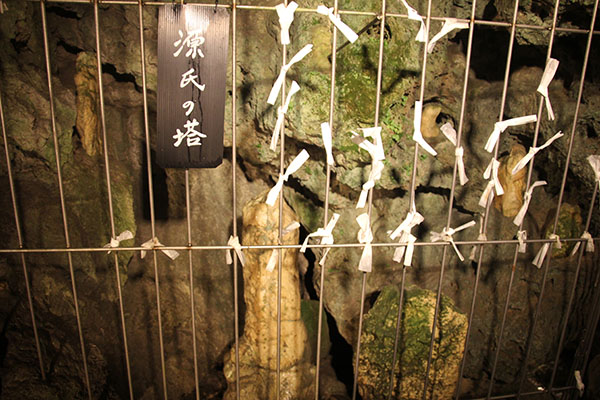 源氏の塔